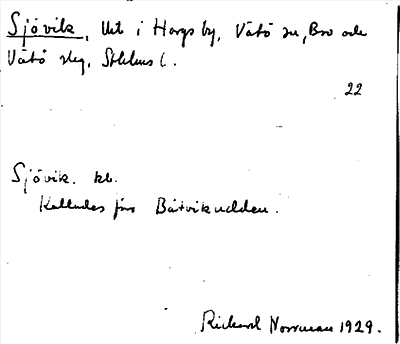 Sjövik, Urb i Hargs by, Vätö sn, Bro och
Vätö slg, Sthlms l.
22
Sjövik. kb.
Kallades förr Båtviksudden.
Richard Norrman 1929.